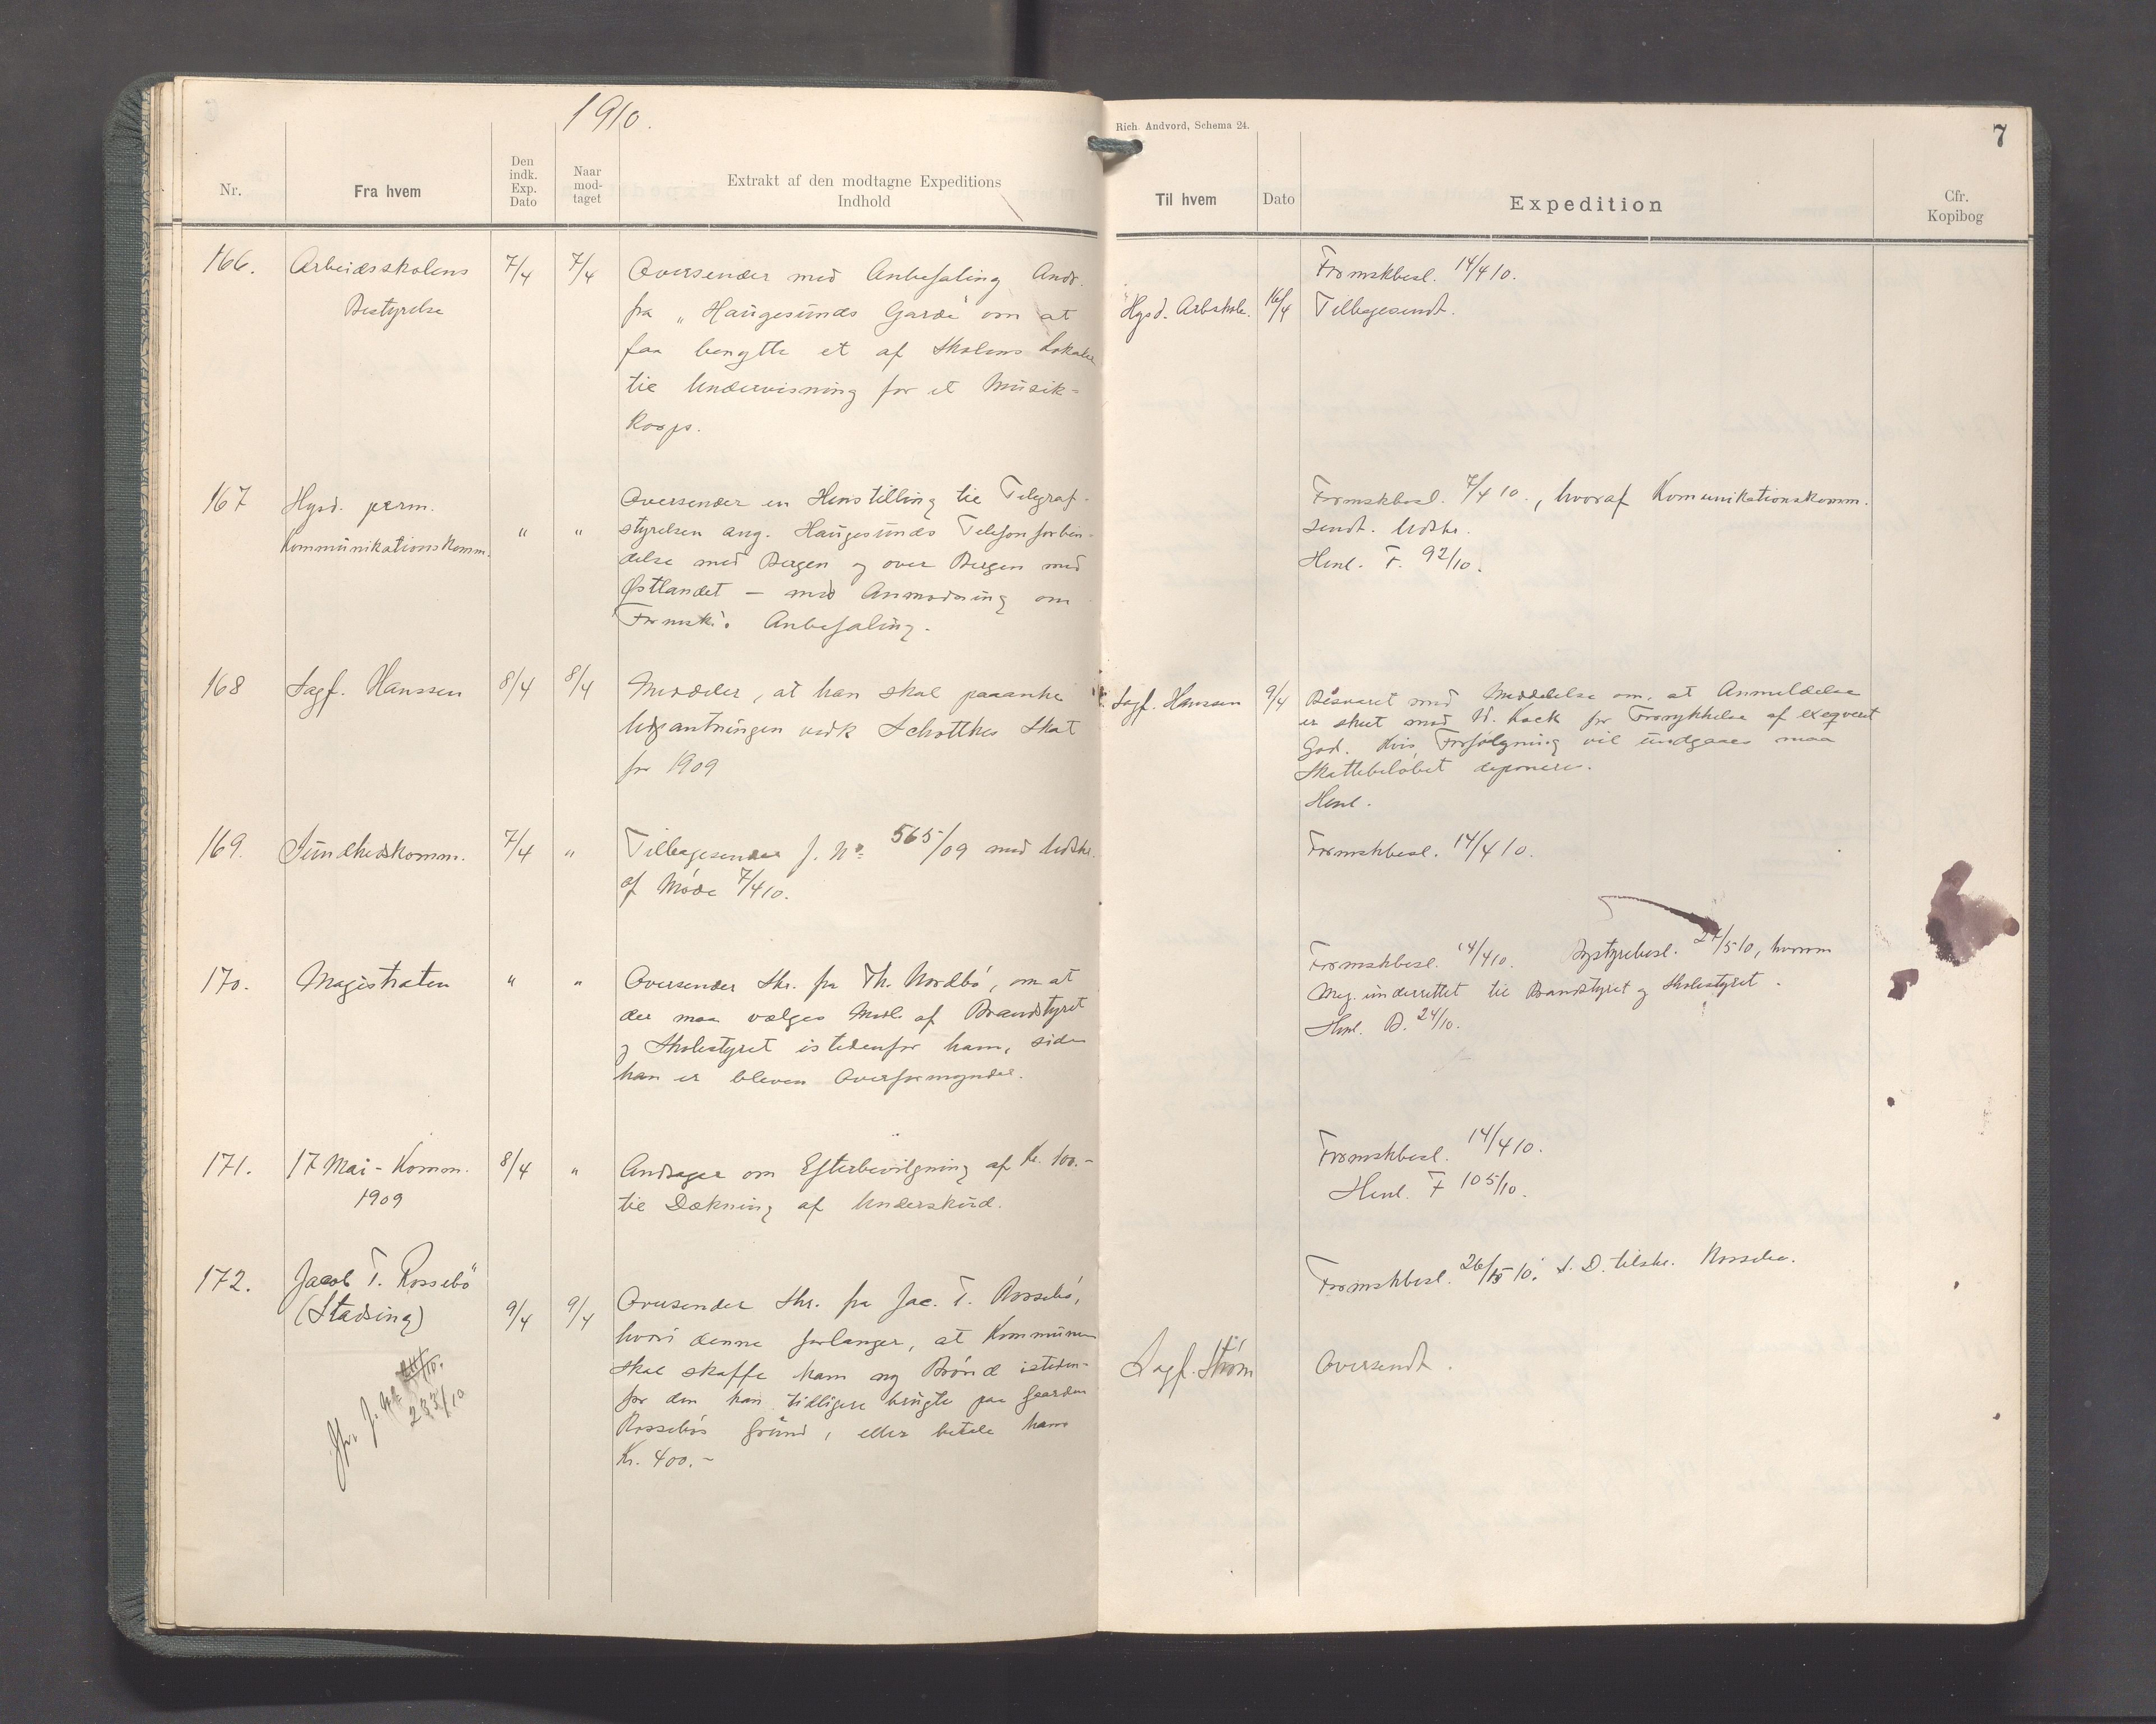 1910.
Nr.
Fra hvem
Den indk. Exp. Dato
Naar mod-taget
Extrakt af den modtagne Expeditions Indhold
166.
Arbeidsskolens
Bestyrelse
7/4
7/4
Oversender med Anbefaling Andr.
fra "Haugesunds Garde" om at
faa benytte et af Skolens Lokaler
til Undervisning for et Musik-
Korps.
167
Hgsd. perm.
Kommunikationskomm.
"
"
Oversender en Henstilling til Telegraf-
styrelsen ang. Haugesunds Telefonforbin-
delse med Bergen og over Bergen med
Østlandet – med Anmodning om
Formsk's Anbefaling.
168
Sagf. Hanssen
8/4
8/4
Meddeler, at han skal paaanke
Udpantningen vedk Schøttkes Skat
for 1909
169.
Sundhedskomm.
7/4
"
Tilbagesender J. No. 565/09 med Udskr.
af Møde 7/4 10.
170.
Magistraten
"
"
Oversender Skr. fra Th. Nordbö, om at
der maa vælges Medl. af Brandstyret
og Skolestyret istedenfor ham, siden
han er bleven Overformynder.
171.
17 Mai-Komm.
1909
8/4
"
Andrager om Efterbevilgning af Kr. 100.-
til Dækning af Underskud.
172.
Jacob T. Rossebö
(Stadsing)
9/4
9/4
Oversender Skr. fra Jac. T. Rossebö,
hvori denne forlanger, at Kommunen
skal skaffe ham ny Brönd isteden-
for den han tidligere brugte paa Gaarden
Rossebös Grund, eller betale ham
Kr. 400.-
Jfr. J. No.
233/10
Rich. Andvord, Schema 24.
7
Til hvem
Dato
Expedition
Cfr. Kopibog
Formskbesl. 14/4 10.
Hgsd. Arbskole.
16/4
Tilbagesendt.
Formskbesl. 7/4 10., hvoraf Komunikationskomm.
sendt. Udskr.
Henl. F. 92/10.
Sagf. Hanssen
9/4
Besvaret med Meddelelse om, at Anmeldelse
er skeet mod W. Kock for Forrykkelse af exeqveret
God. Hvis Forfölgning vil undgaaes maa
Skattebelöbet deponeres.
Henl.
Formskbesl. 14/4 10.
Formskbesl. 14/4 10. Bystyrebesl. 27/5 10, hvorom
Mag. underrettet til Brandstyret og Skolestyret.
Henl. B. 24/10.
Formskbesl. 14/4 10.
Henl. F 105/10.
Formskbesl. 26/5 10. S. D. tilskr. Rossebø.
Sagf. Ström
Oversendt.